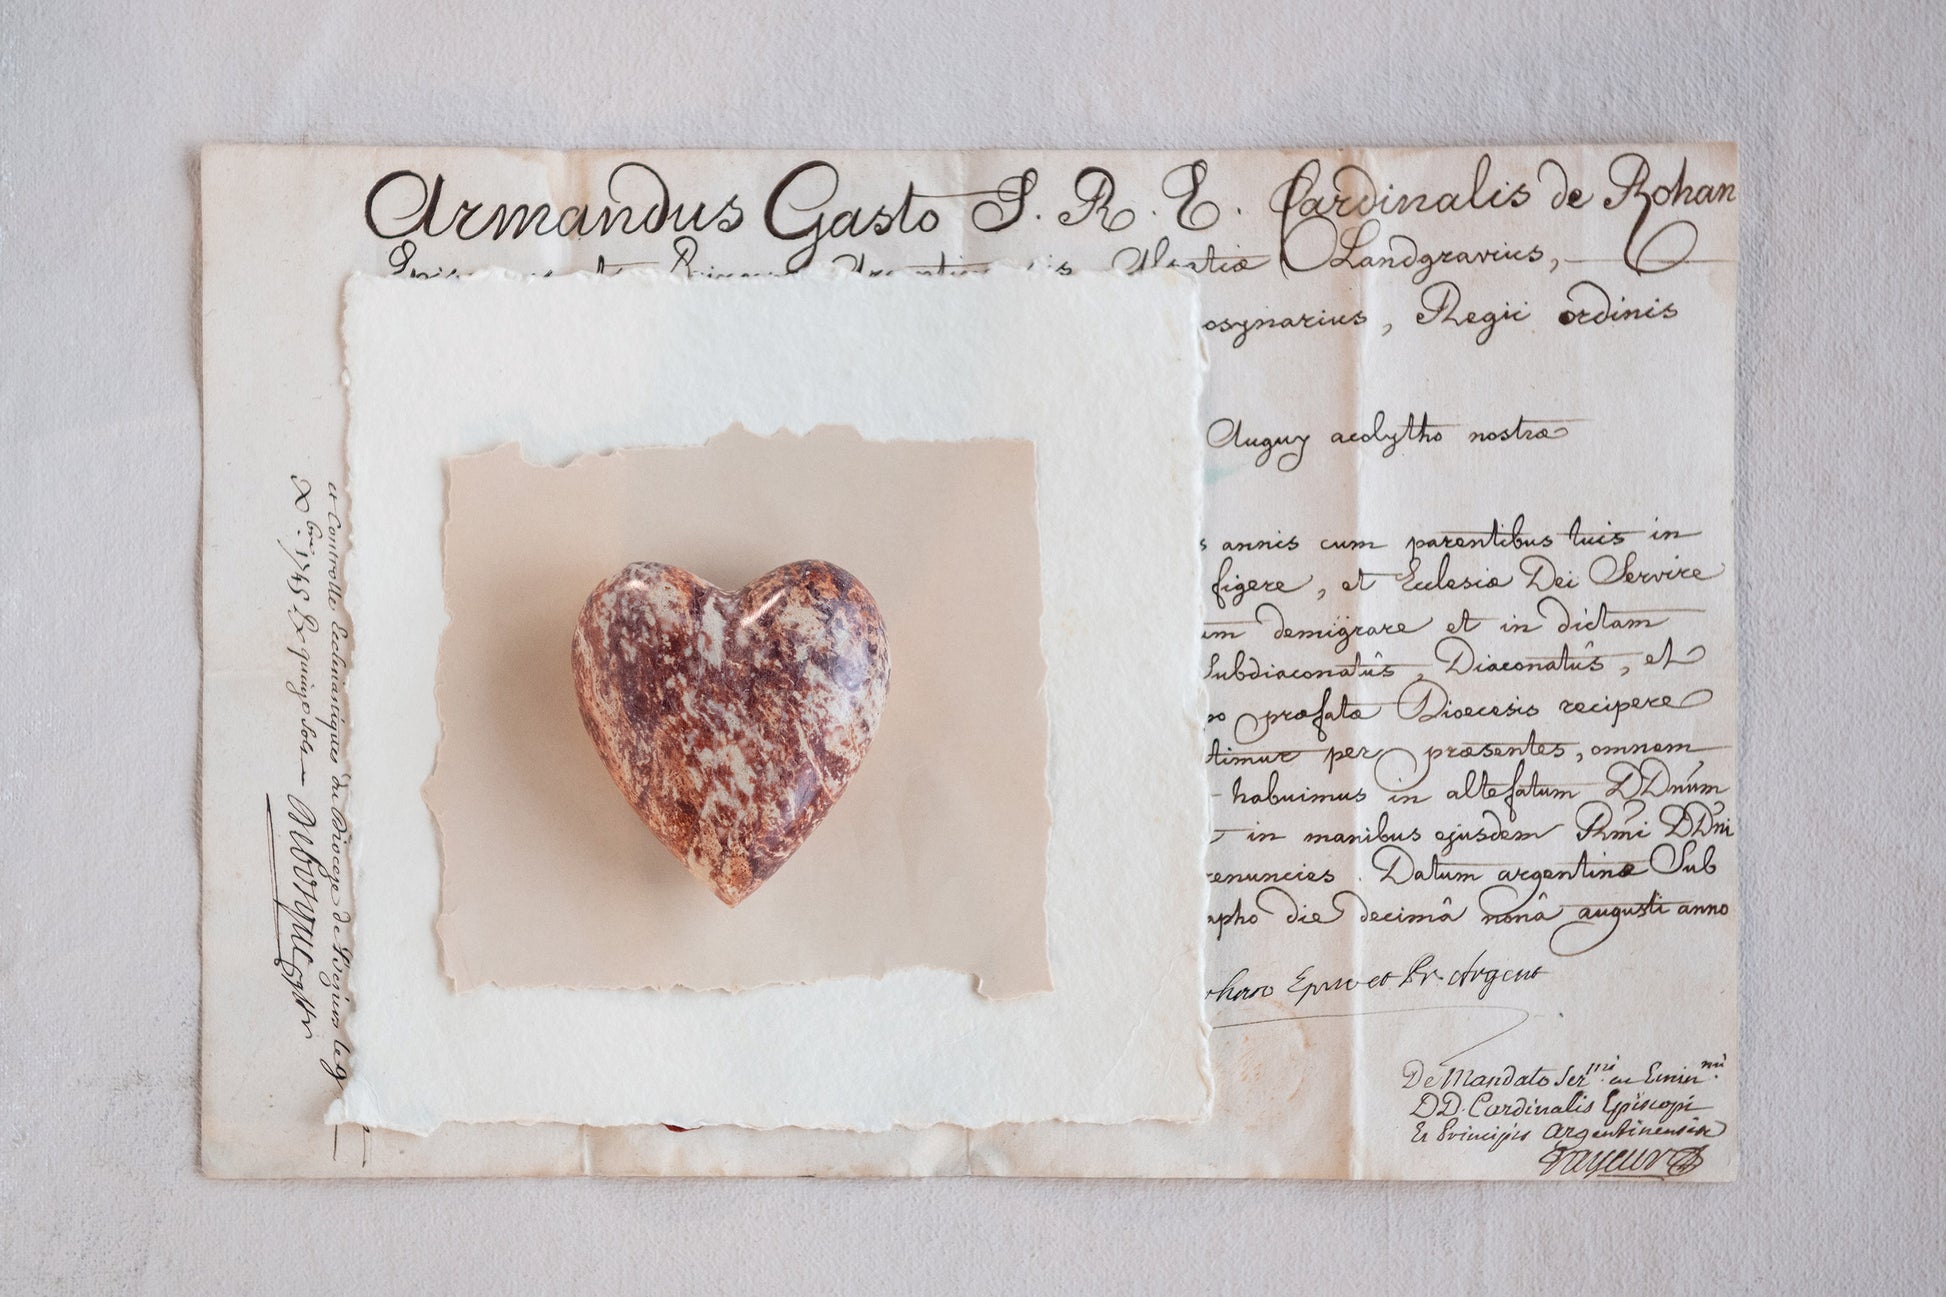 Armandus Gasto S. R. E. Cardinalis de Rohan
Alsatiæ Landgravius,
osynarius, Regii ordinis
Auguy acolytho nostræ
s annis cum parentibus tuis in
figere, et Ecclesiæ Dei Servire
um demigrare et in dictam
Subdiaconatûs, Diaconatûs, et
præfatæ Dioecesis recipere
timur per præsentes, omnem
habuimus in altefatum DDnúm
in manibus ejusdem Rmi DDni
renuncies. Datum argentinæ Sub
apho die decimâ nonâ augusti anno
Epus et Pr. Argent
De Mandato Ser.mi ac Emin.mi
DD. Cardinalis Episcopi
Et Principis argentinensis
et Controlle Ecclesiastiques du Diocese de
1745